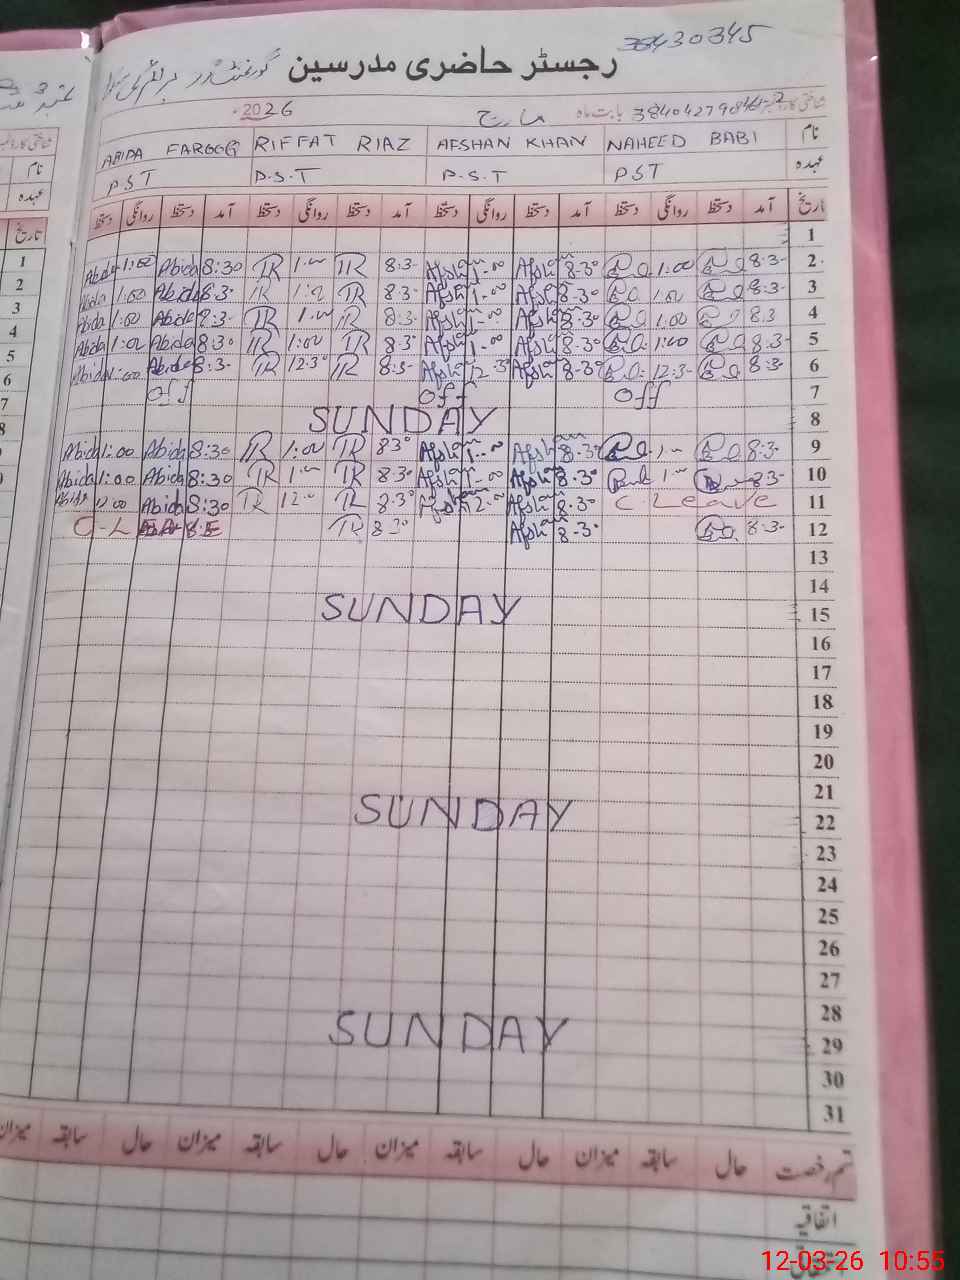 38430345
رجسٹر حاضری مدرسین
شناختی کارڈ نمبر 38404279844-2 بابت ماہ مارچ 2026
نام NAHEED BABI AFSHAN KHAN RIFFAT RIAZ ABIDA FAROOQ
عہدہ PST P.S.T P.S.T P.S.T
تاریخ آمد دستخط روانگی دستخط آمد دستخط روانگی دستخط آمد دستخط روانگی دستخط آمد دستخط روانگی دستخط
1
Abida 1:00 Abida 8:30 TR 1:00 TR 8:3- Afshan 1-00 Afshan 8-30 1:00 8:3- 2
Abida 1:00 Abida 8:3- TR 1:00 TR 8:3- Afshan 1-00 Afshan 8-30 1:00 8:3- 3
Abida 1:00 Abida 8:3- TR 1:00 TR 8:3- Afshan 1-00 Afshan 8-30 1:00 8:3 4
Abida 1:00 Abida 8:30 TR 1:00 TR 8:30 Afshan 1-00 Afshan 8-30 1:00 8:3- 5
Abida 1:00 Abida 8:3- TR 12:30 TR 8:3- Afshan 12-30 Afshan 8-30 12:3- 8:3- 6
Off Off Off 7
SUNDAY 8
Abida 1:00 Abida 8:30 TR 1:00 TR 830 Afshan 1-00 Afshan 8-30 1:00 8:3- 9
Abida 1:00 Abida 8:30 TR 1:00 TR 8:30 Afshan 1-00 Afshan 8-30 1:00 8:3- 10
Abida 12:00 Abida 8:30 TR 12:00 TR 8:30 Afshan 12:00 Afshan 8-30 C Leave 11
C-L TR 8:30 Afshan 8-30 8:3- 12
13
14
SUNDAY 15
16
17
18
19
20
21
SUNDAY 22
23
24
25
26
27
28
SUNDAY 29
30
31
قسم رخصت حال سابقہ میزان حال سابقہ میزان حال سابقہ میزان حال سابقہ میزان
اتفاقیہ
12-03-26 10:55